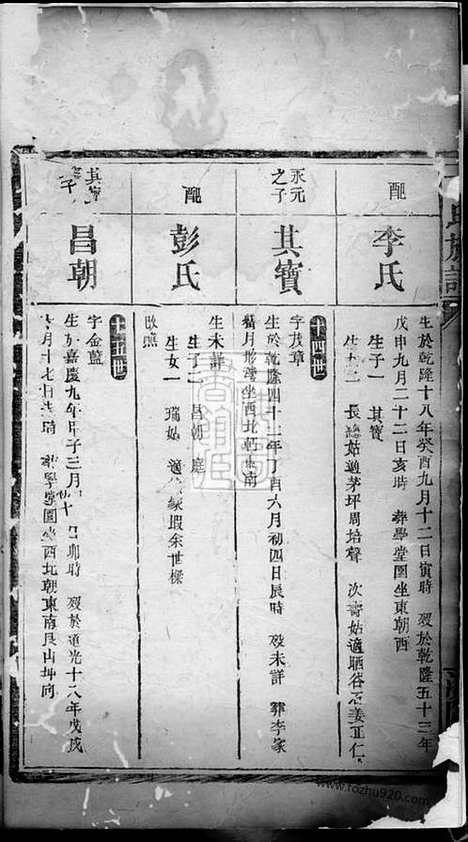 氏族譜
配
李氏
生於乾隆十八年癸酉九月十二日寅時 歿於乾隆五十三年
戊申九月二十二日亥時 葬學堂園坐東朝西
生子一 其寶
生女二 長 姑適茅坪周培聲 次壽姑適晒谷石姜正仁
永元之子
其寶
十四世
字茂章
生於乾隆四十二年丁酉六月初四日辰時 歿未詳 葬李家
坐西北朝東南
配
彭氏
生未詳
生子二 昌朝 庭
生女一 瑞姑 適 余世樑
改適
其寶 子
昌朝
十五世
字金藍
生於嘉慶九年甲子三月 卯時 歿於道光十八年戊戌
月十七日 時 葬學堂園坐西北朝東南艮山坤向
www.fozhu920.com